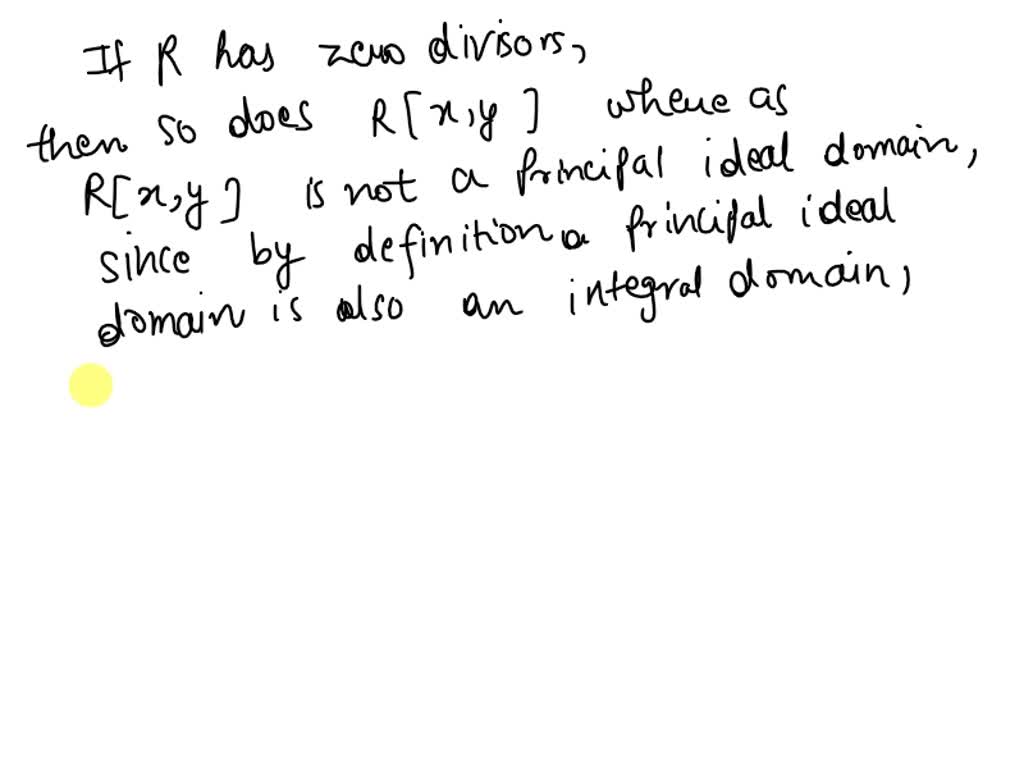 If R has zero divisors,
then so does R[x,y] where as
R[x,y] is not a principal ideal domain,
since by definition a principal ideal
domain is also an integral domain,